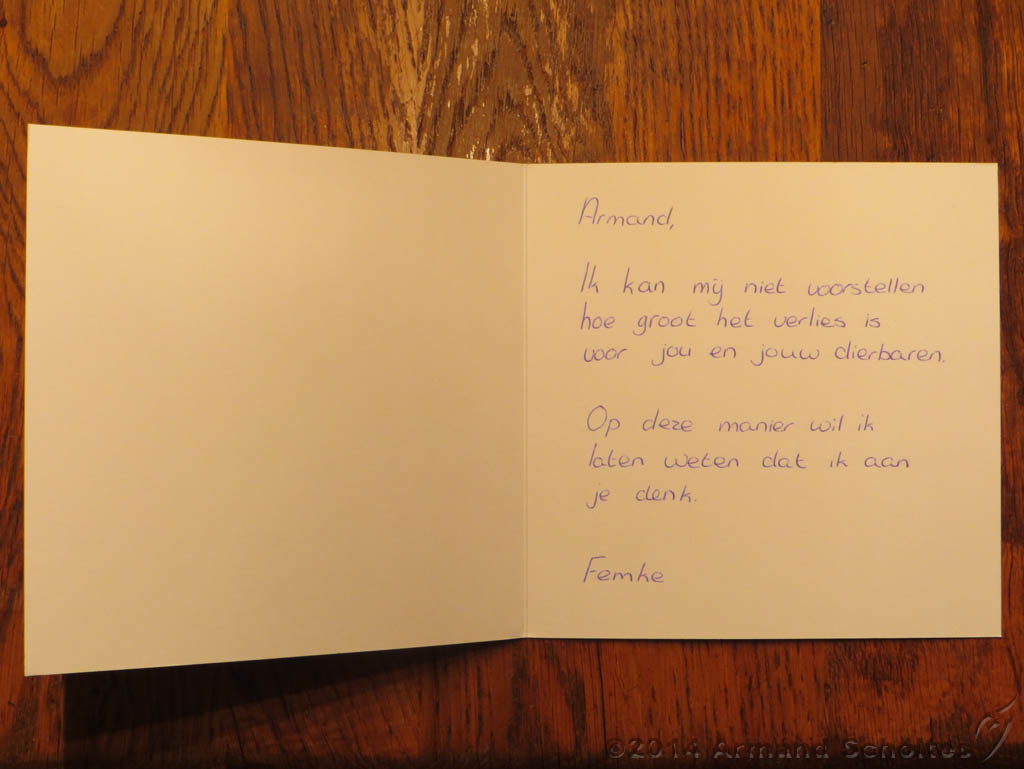 Armand,
Ik kan mij niet voorstellen
hoe groot het verlies is
voor jou en jouw dierbaren.
Op deze manier wil ik
laten weten dat ik aan
je denk.
Femke
©2014 Armand Scholtes